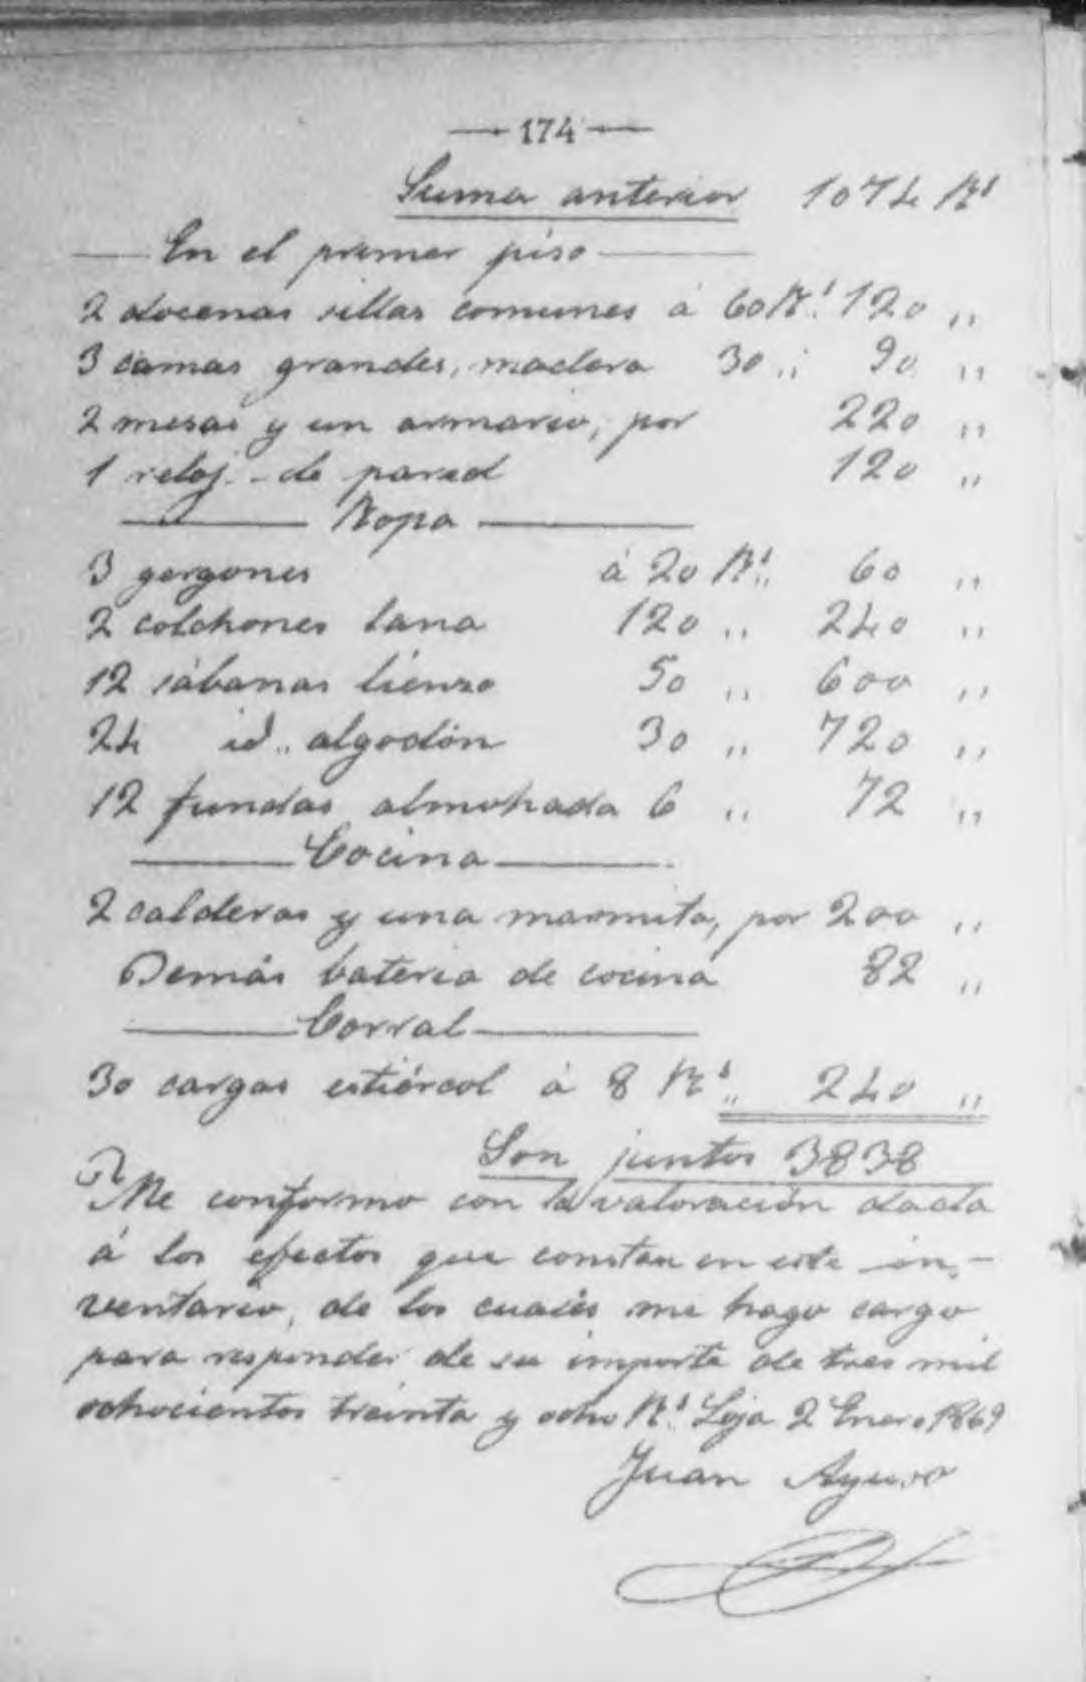 — 174 —
Suma anterior 1074 Rs
En el primer piso
2 docenas sillas comunes á 60 Rs. 120 „
3 camas grandes, madera 30 „ 90 „
2 mesas y un armario, por 220 „
1 reloj - de pared 120 „
Ropa
3 gergones á 20 Rs. 60 „
2 colchones lana 120 „ 240 „
12 sábanas lienzo 50 „ 600 „
24 id. algodón 30 „ 720 „
12 fundas almohada 6 „ 72 „
Cocina
2 calderas y una marmita, por 200 „
Demás bateria de cocina 82 „
Corral
30 cargas estiércol á 8 Rs. 240 „
Son juntos 3838
Me conformo con la valoración dada
á los efectos que constan en este in-
ventario, de los cuales me hago cargo
para responder de su importe de tres mil
ochocientos treinta y ocho Rs. Loja 2 Enero 1869
Juan Ayuso